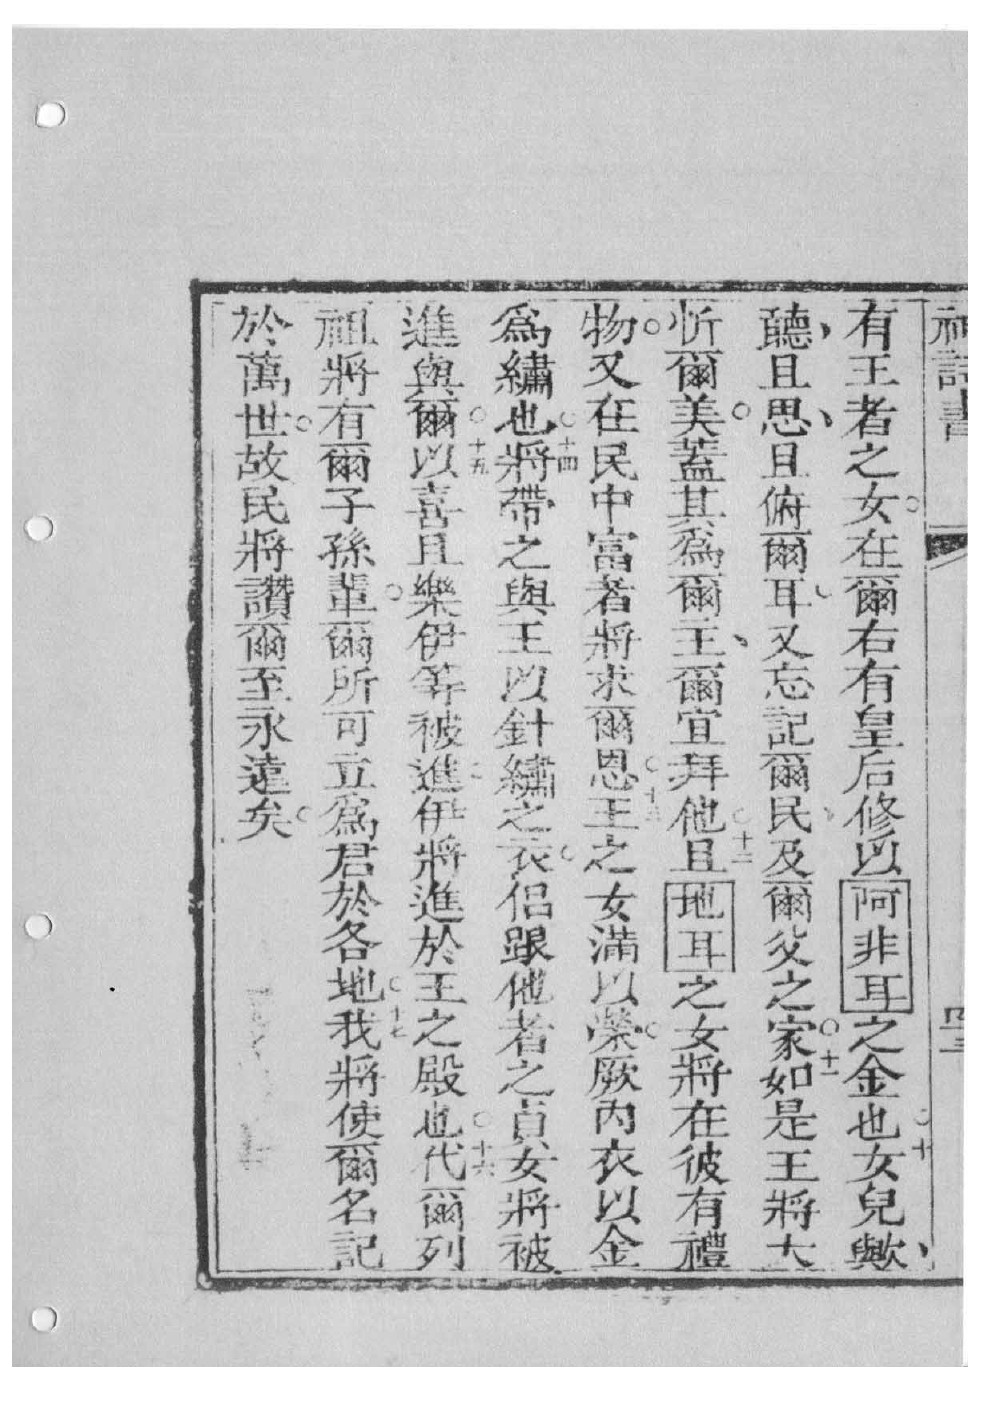 神詩書
有王者之女。在爾右有皇后修以阿非耳之金也。十女兒歟、
聽、且思、且俯爾耳、又忘記爾民、及爾父之家。十一如是王將大
忻爾美。蓋其爲爾主、爾宜拜他。十二且地耳之女將在彼有禮
物。又在民中富者將求爾恩。十三王之女滿以榮。厥內衣以金
爲繡也。十四將帶之與王以針繡之衣。侶跟他者之貞女將被
進與爾。十五以喜且樂伊等被進、伊將進於王之殿也。十六代爾列
祖將有爾子孫輩。爾所可立爲君於各地。十七我將使爾名記
於萬世。故民將讚爾至永遠矣。